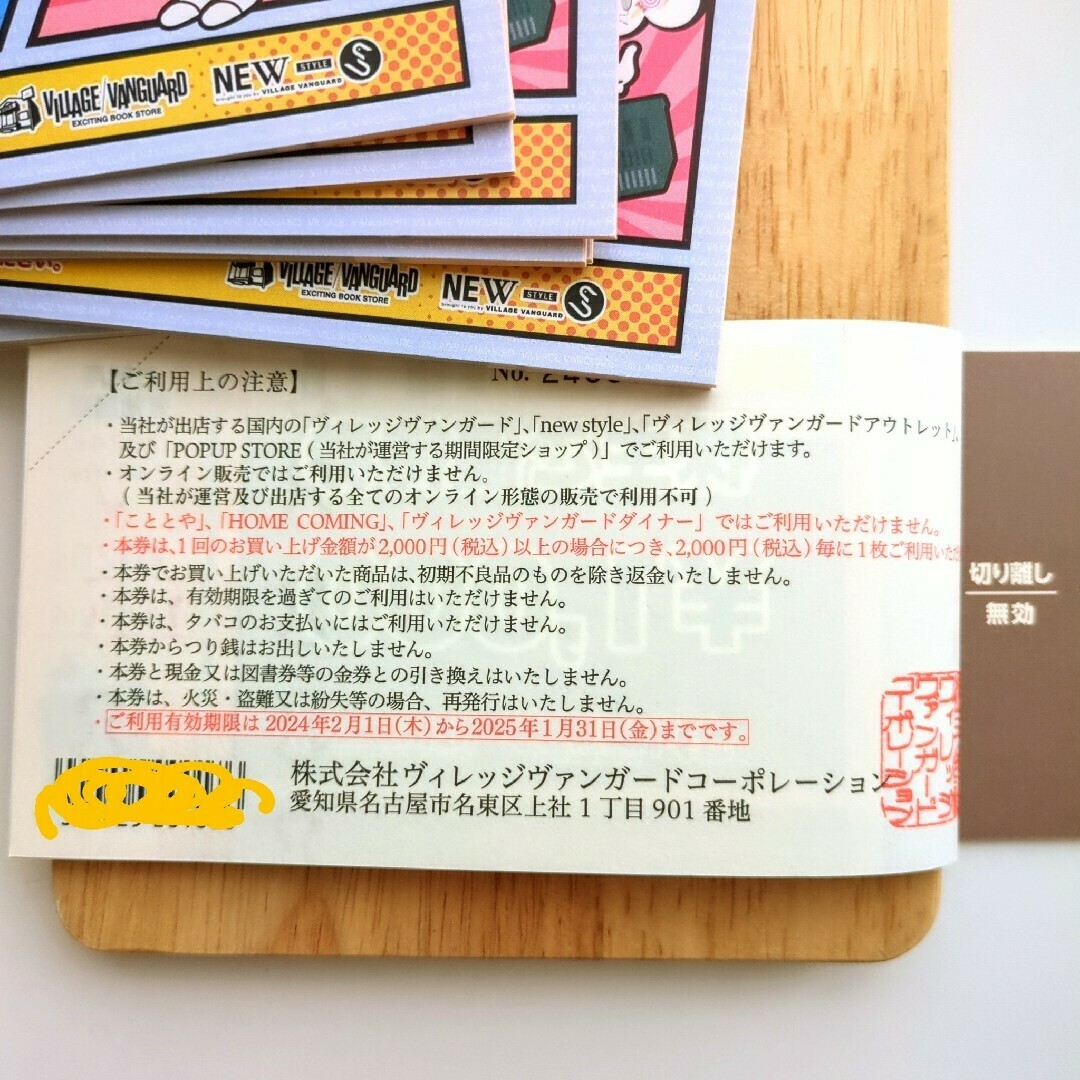 VILLAGE/VANGUARD
EXCITING BOOK STORE
NEW STYLE
brought to you by VILLAGE VANGUARD
ださい。
VILLAGE/VANGUARD
EXCITING BOOK STORE
NEW STYLE
brought to you by VILLAGE VANGUARD
No.
【ご利用上の注意】
・当社が出店する国内の「ヴィレッジヴァンガード」、「new style」、「ヴィレッジヴァンガードアウトレット」、
及び「POPUP STORE ( 当社が運営する期間限定ショップ )」でご利用いただけます。
・オンライン販売ではご利用いただけません。
( 当社が運営及び出店する全てのオンライン形態の販売で利用不可 )
・「こととや」、「HOME COMING」、「ヴィレッジヴァンガードダイナー」ではご利用いただけません。
・本券は、1回のお買い上げ金額が2,000円（税込）以上の場合につき、2,000円（税込）毎に1枚ご利用いただ
・本券でお買い上げいただいた商品は、初期不良品のものを除き返金いたしません。
・本券は、有効期限を過ぎてのご利用はいただけません。
・本券は、タバコのお支払いにはご利用いただけません。
・本券からつり銭はお出しいたしません。
・本券と現金又は図書券等の金券との引き換えはいたしません。
・本券は、火災・盗難又は紛失等の場合、再発行はいたしません。
・ご利用有効期限は 2024年2月1日(木)から2025年1月31日(金)までです。
株式会社ヴィレッジヴァンガードコーポレーション
愛知県名古屋市名東区上社1丁目901番地
切り離し
無効